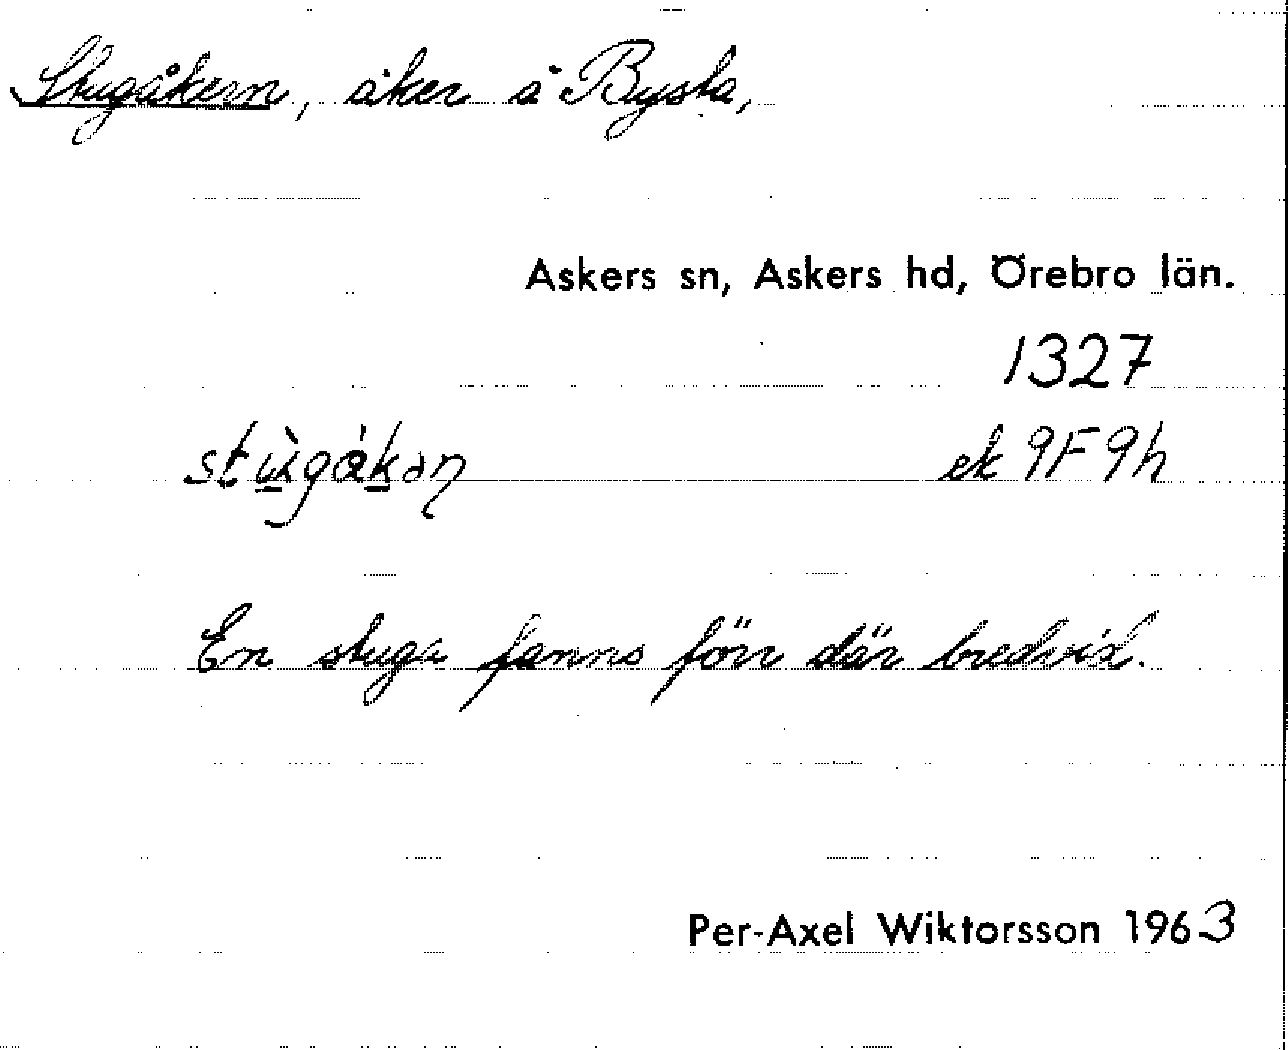 Stugåkern, åker å Bysta,
Askers sn, Askers hd, Örebro län.
1327
ek 9F9h
En stuga fanns förr där bredvid.
Per-Axel Wiktorsson 1963